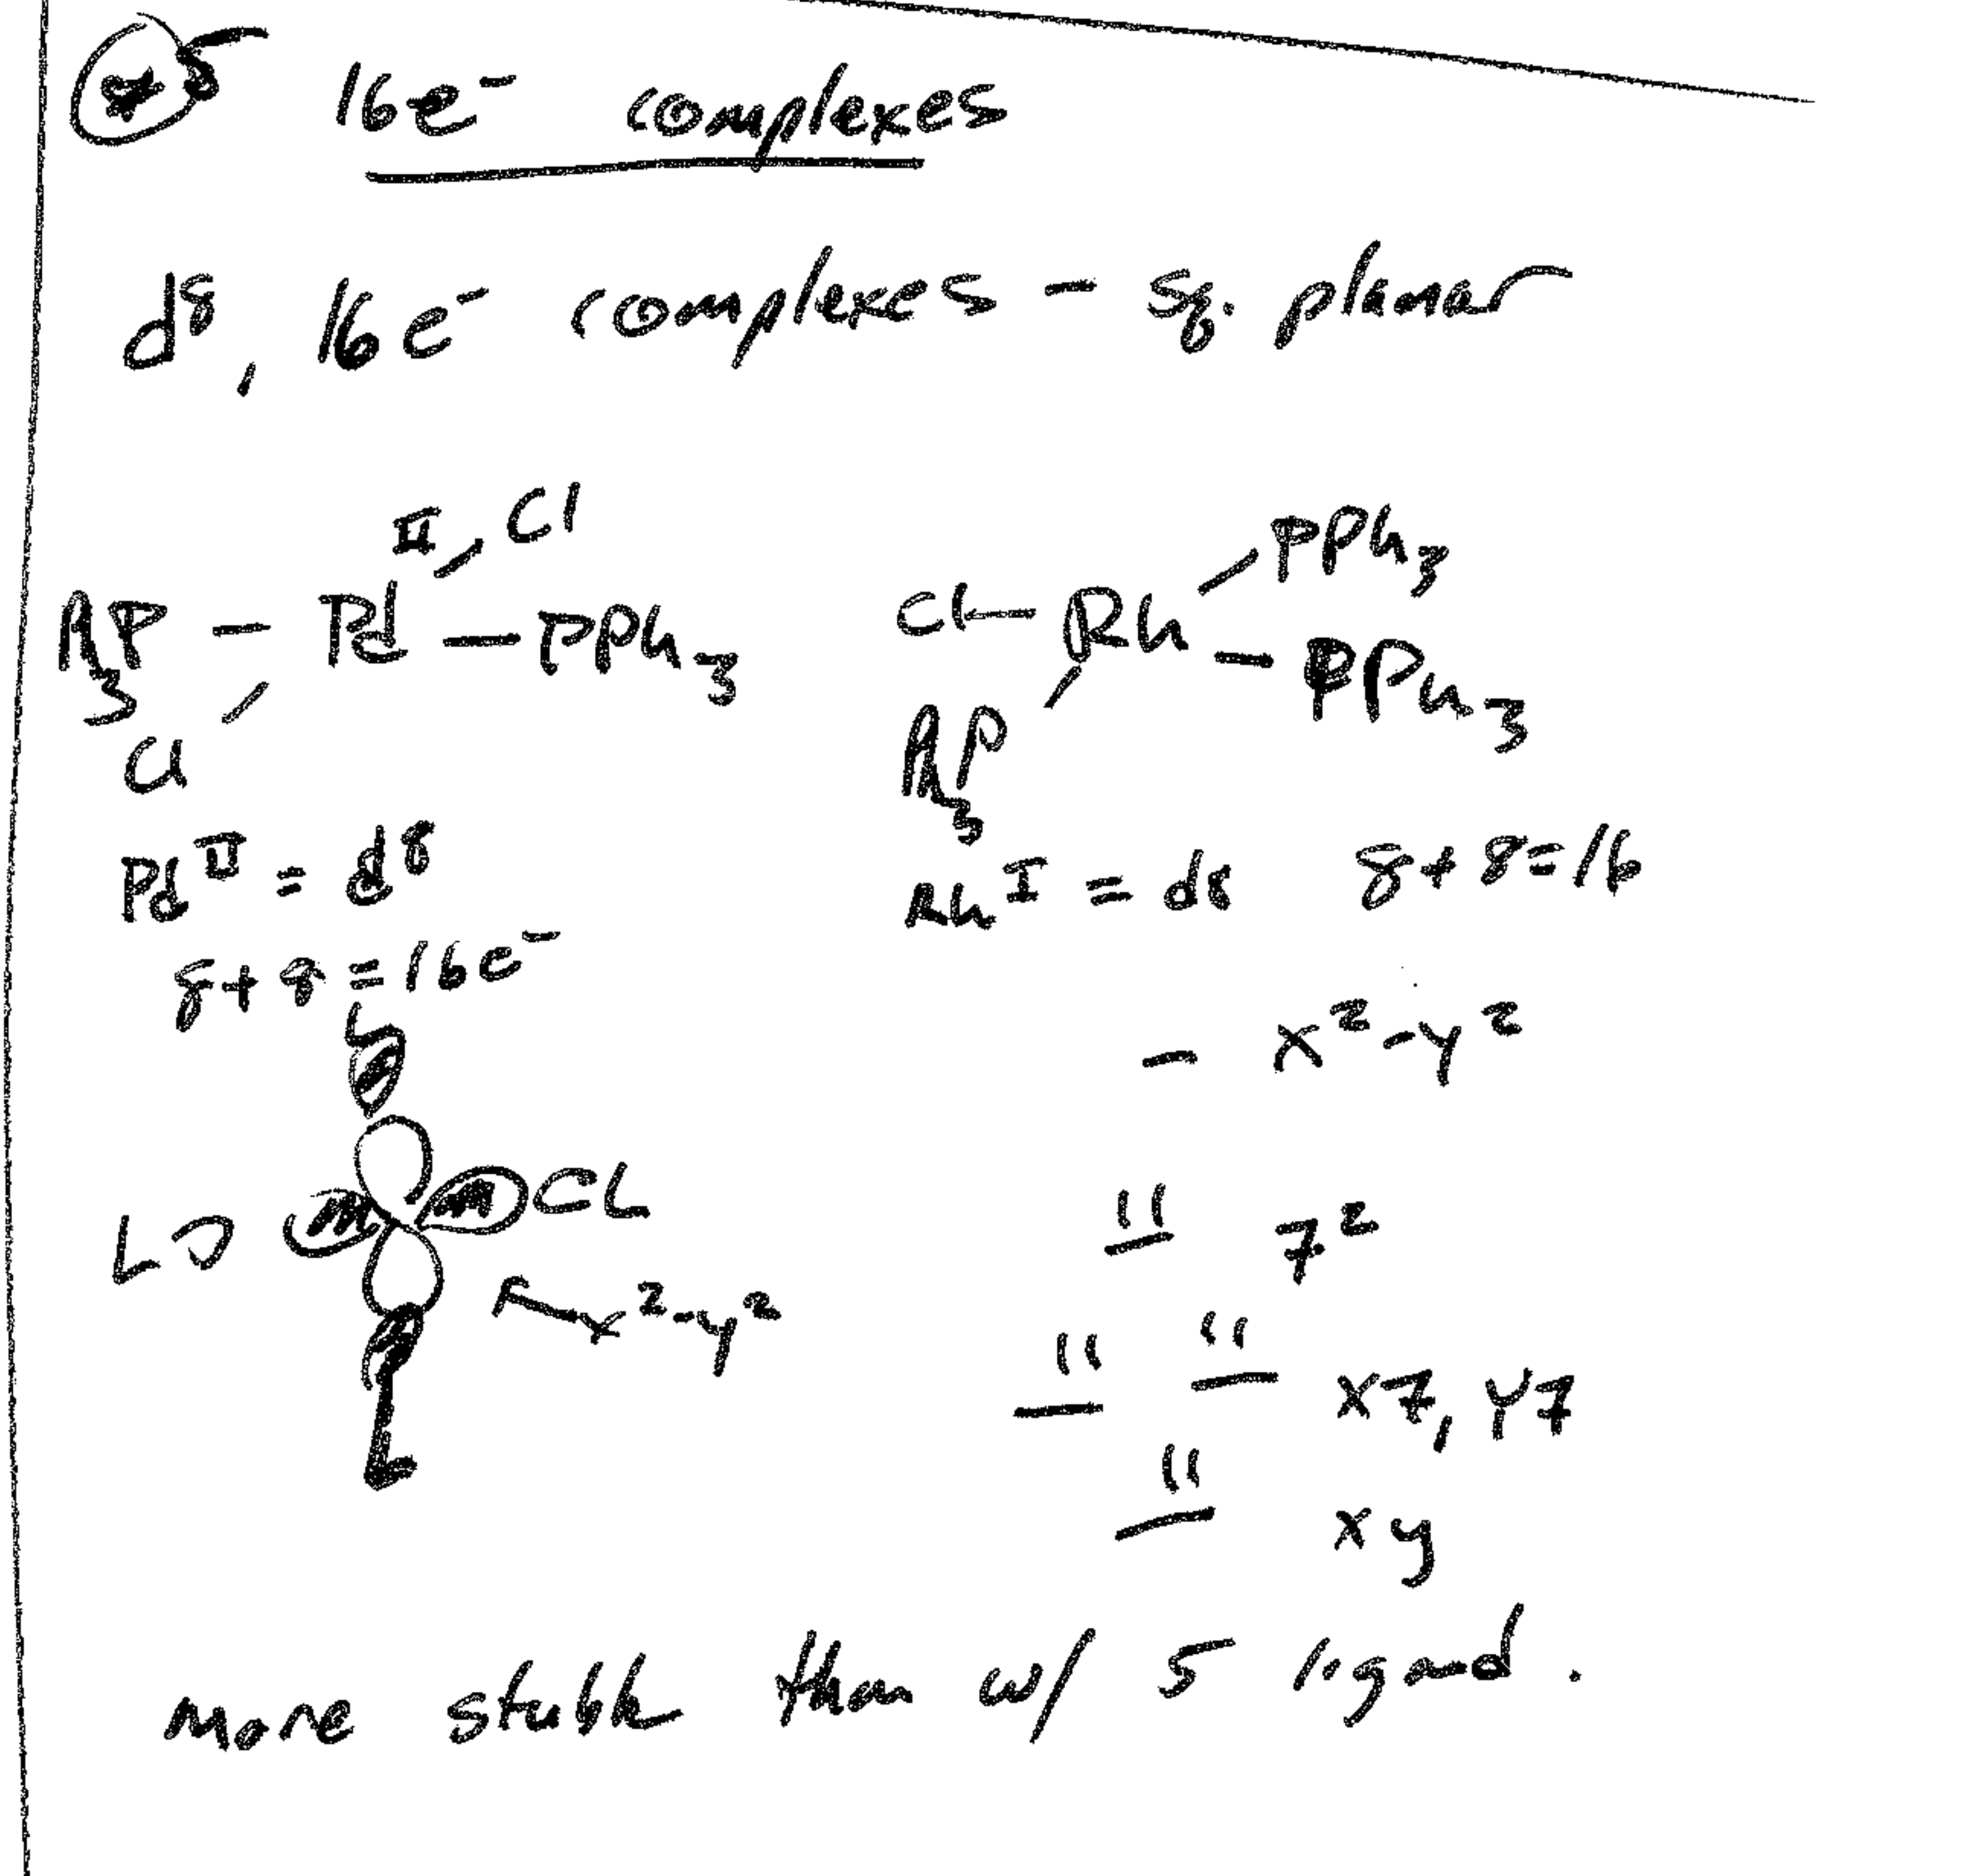 * 5 16e⁻ complexes
d⁸, 16e⁻ complexes - sq. planar
II Cl
Ph₃P - Pd - PPh₃
Cl
PPh₃
Cl - Rh - PPh₃
Ph₃P
Pd^II = d⁸
8+8=16e⁻
Rh^I = d8 8+8=16
L
L CL
x²-y²
L
- x²-y²
z²
xz, yz
xy
more stable than w/ 5 ligand.